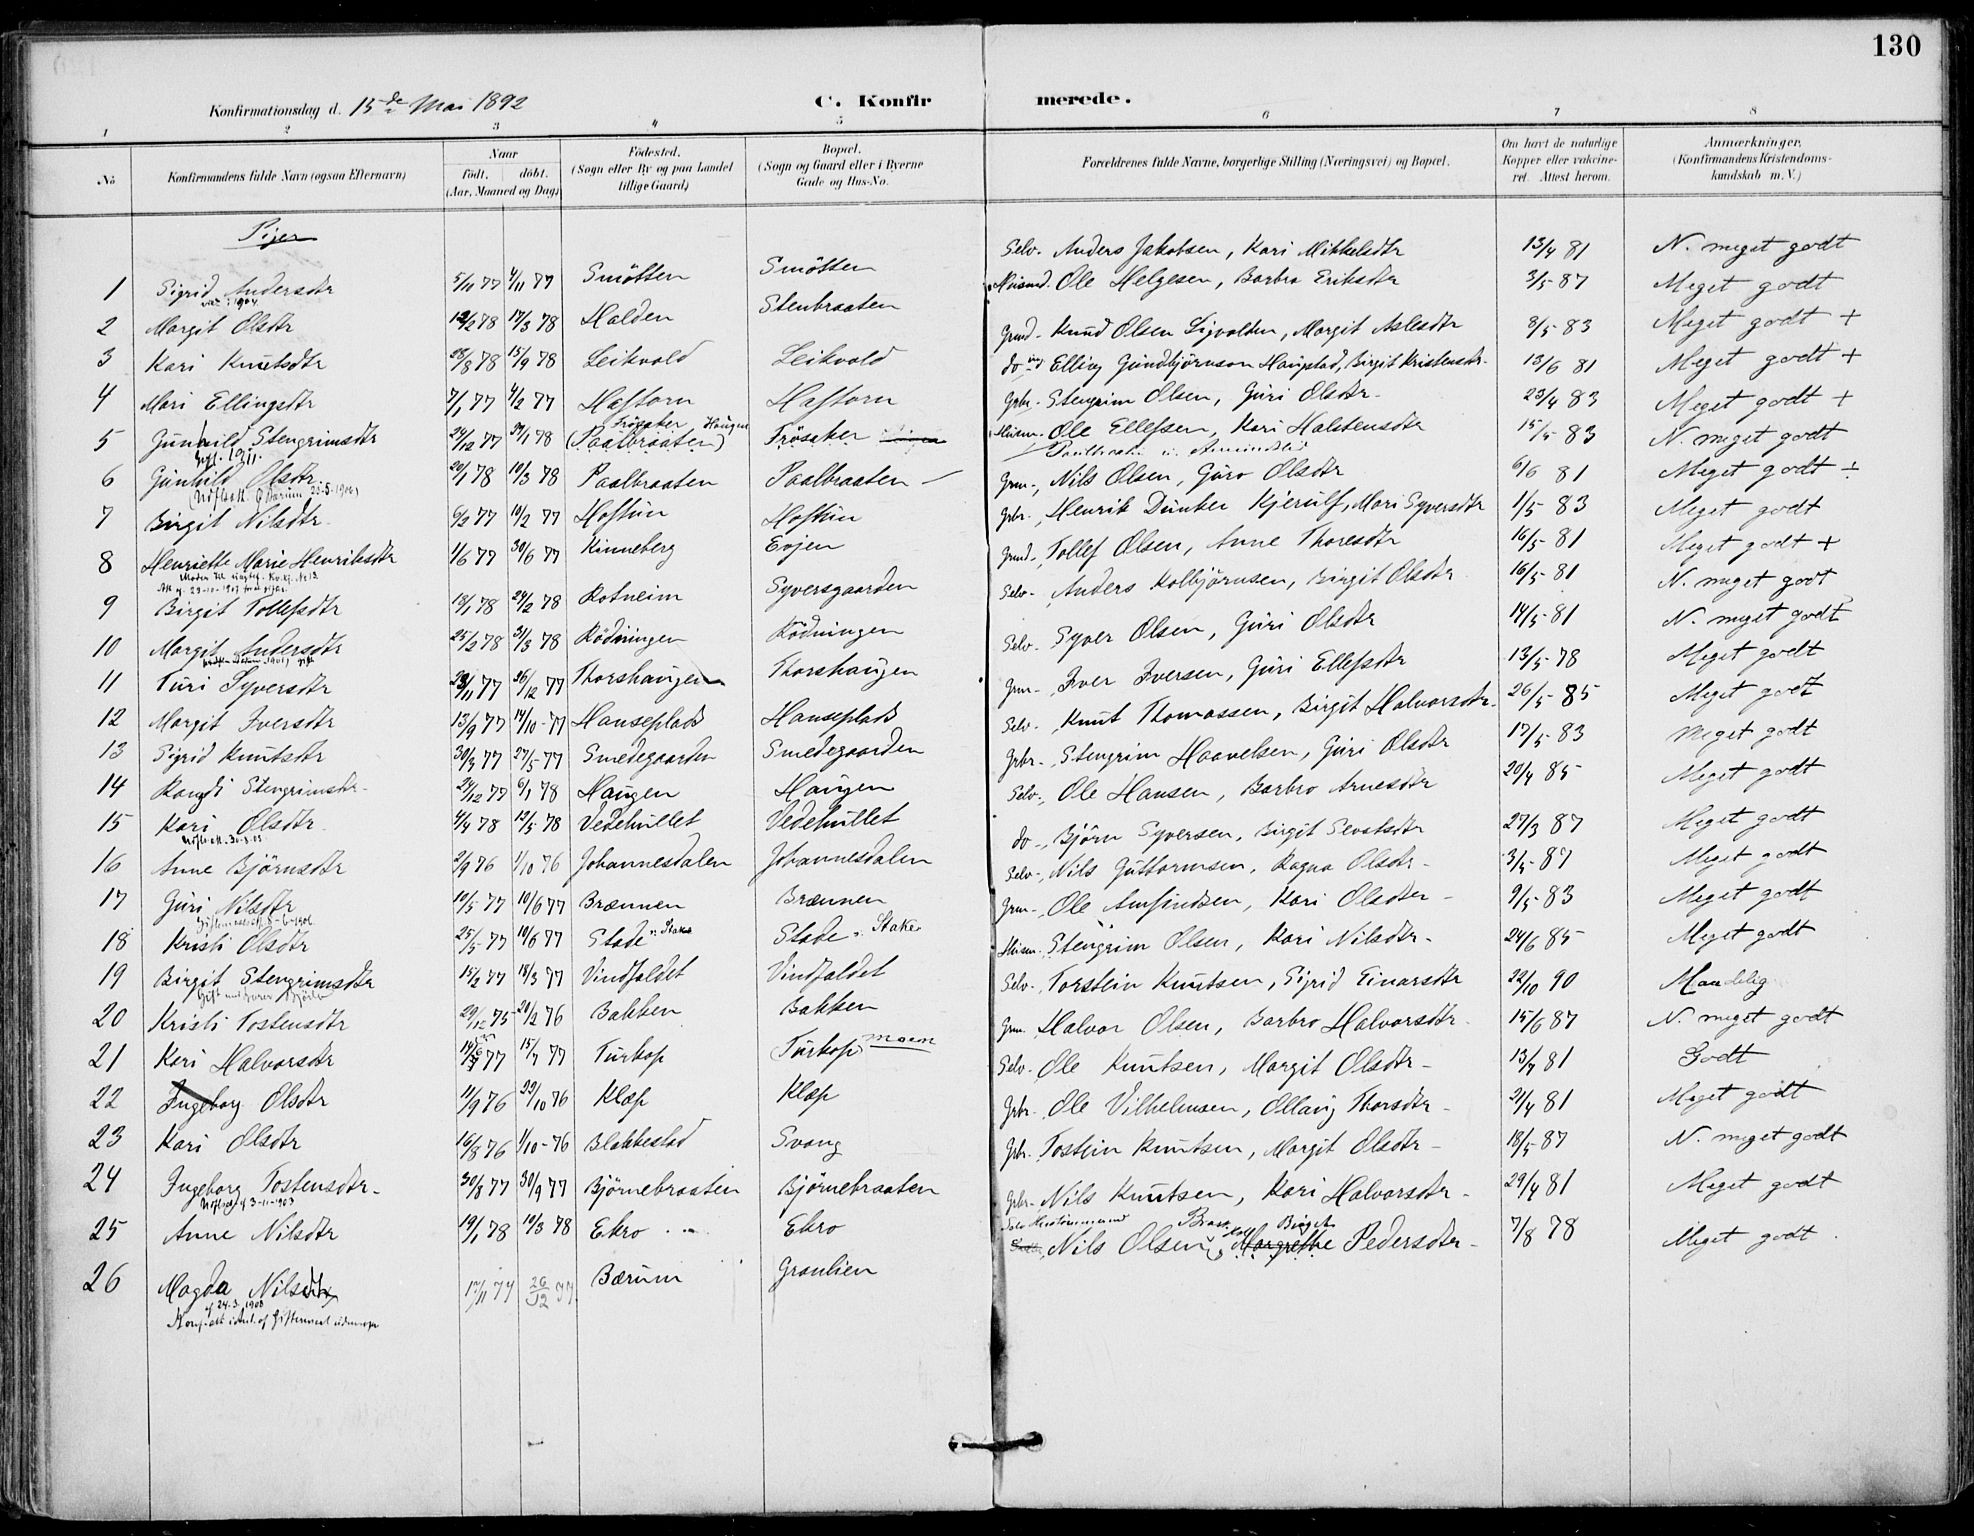 130
Konfirmationsdag d. 15de Mai 1892 C. Konfirmerede.
1 2 3 4 5 6 7 8
No Konfirmandens fulde Navn (ogsaa Efternavn) Naar født. døbt. (Aar, Maaned og Dag) Fødested. (Sogn eller By og paa Landet tillige Gaard) Bopæl. (Sogn og Gaard eller i Byerne Gade og Hus-No. Forældrenes fulde Navne, borgerlige Stilling (Næringsvei) og Bopæl. Om havt de naturlige Kopper eller vakcineret. Attest herom. Anmærkninger. (Konfirmandens Kristendomskundskab m. V.)
Piger
1 Sigrid Andersdtr 5/11 77 4/11 77 Smøtten Smøtten Selv. Anders Jakobsen, Kari Mikkelsdtr 13/4 81 N. meget godt
2 Margit Olsdtr 12/2 78 17/3 78 Halden Stenbraaten Husmd. Ole Helgesen, Barbro Eriksdtr 3/5 87 Meget godt
3 Kari Knutsdtr 28/8 78 15/9 78 Leikvold Leikvold Grmd. Knud Olsen Sigvolden, Margit Aslesdtr 8/5 83 Meget godt +
4 Mari Ellingsdtr 7/1 77 4/2 77 Haftorn Haftorn do Elling Gundbjörnson Haugstad, Birgit Kristensdtr. 13/6 81 Meget godt +
5 Gunhild Stengrimsdtr 24/12 77 /1 78 Frøsaker Haugen (Paalbraaten) Frøsaker Grbr. Stengrim Olsen, Guri Olsdtr. 23/4 83 Meget godt +
6 Gunhild Olsdtr. 20/1 78 10/3 78 Paalbraaten Paalbraaten Husm. Ole Ellefsen, Kari Halstensdtr 15/5 83 N. meget godt
7 Birgit Nilsdtr. 6/2 77 10/2 77 Hoftun Hoftun Grm. Nils Olsen, Guro Olsdtr 6/6 81 Meget godt +
8 Henriette Marie Henriksdtr 1/6 77 30/6 77 Kinneberg Evjen Grbr. Henrik Dunker Kjerulf, Mari Syversdtr 1/5 83 Meget godt
9 Birgit Tollefsdtr 18/1 78 24/2 78 Rotneim Syversgaarden Grmd. Tollef Olsen, Anne Thoresdtr 16/5 81 Meget godt +
10 Margit Andersdtr 25/2 78 31/3 78 Rødningen Rødningen Selv. Anders Kolbjørnsen, Birgit Olsdtr 16/5 81 N. meget godt
11 Turi Syversdtr 23/11 77 26/12 77 Thorshaugen Thorshaugen Selv. Syver Olsen, Guri Olsdtr 14/5 81 N. meget godt
12 Margit Iversdtr 13/9 77 14/10 77 Hanseplads Hanseplads Grm. Iver Iversen, Guri Ellefsdtr 13/5 78 Meget godt
13 Sigrid Knutsdtr 30/3 77 27/5 77 Smedegaarden Smedegaarden Selv. Knut Thomassen, Birgit Halvorsdtr. 26/5 85 Meget godt
14 Randi Stengrimsdtr. 24/12 77 6/1 78 Haugen Haugen Grbr. Stengrim Haavelsen, Guri Olsdtr 17/5 83 Meget godt
15 Kari Olsdtr 4/4 78 12/5 78 Vedehullet Vedehullet Selv. Ole Hansen, Barbro Arnesdtr 20/4 85 Meget godt
16 Anne Bjørnsdtr 2/9 76 1/10 76 Johannesdalen Johannesdalen do. Bjørn Syversen, Birgit Sevatsdtr 27/3 87 Meget godt
17 Guri Nilsdtr 10/5 77 10/6 77 Brænnen Brænnen Selv. Nils Guttormsen, Ragna Olsdtr. 3/5 87 Meget godt
18 Kristi Olsdtr 25/5 77 10/6 77 Stade v. Stake Stade v. Stake Grm. Ole Amfindsen, Kari Olsdtr 9/5 83 Meget godt
19 Birgit Stengrimsdtr 15/2 77 18/3 77 Vindfaldet Vindfaldet Husm. Stengrim Olsen, Kari Nilsdtr. 24/6 85 Meget godt
20 Kristi Tostensdtr 29/12 75 20/2 76 Bakken Bakken Selv. Torstein Knutsen, Sigrid Einarsdtr 22/10 90 Maadelig
21 Kari Halvorsdtr 14/6 77 15/7 77 Turkop Turkop Moen Grm. Halvor Olsen, Barbro Halvorsdtr 15/6 87 N. meget godt
22 Ingeborg Olsdtr 11/9 76 22/10 76 Klæp Klæp Selv. Ole Knutsen, Margit Olsdtr 13/7 81 Godt
23 Kari Olsdtr 16/8 76 1/10 76 Blakkestad Svang Grbr. Ole Vilhelmsen, Ollaug Thorsdtr 21/4 81 Meget godt
24 Ingeborg Tostensdtr. 30/8 77 30/9 77 Bjørnebraaten Bjørnebraaten Grbr. Tostein Knutsen, Margit Olsdtr 18/5 87 N. meget godt
25 Anne Nilsdtr 19/1 78 10/3 78 Ekro Ekro Grbr. Nils Knutsen, Kari Halvorsdtr 29/4 81 Meget godt
26 Magda Nilsdtr 17/11 77 26/12 77 Bærum Granlien Nils Olsen Braat, Birgit Margrethe Pedersdtr 7/8 78 Meget godt.